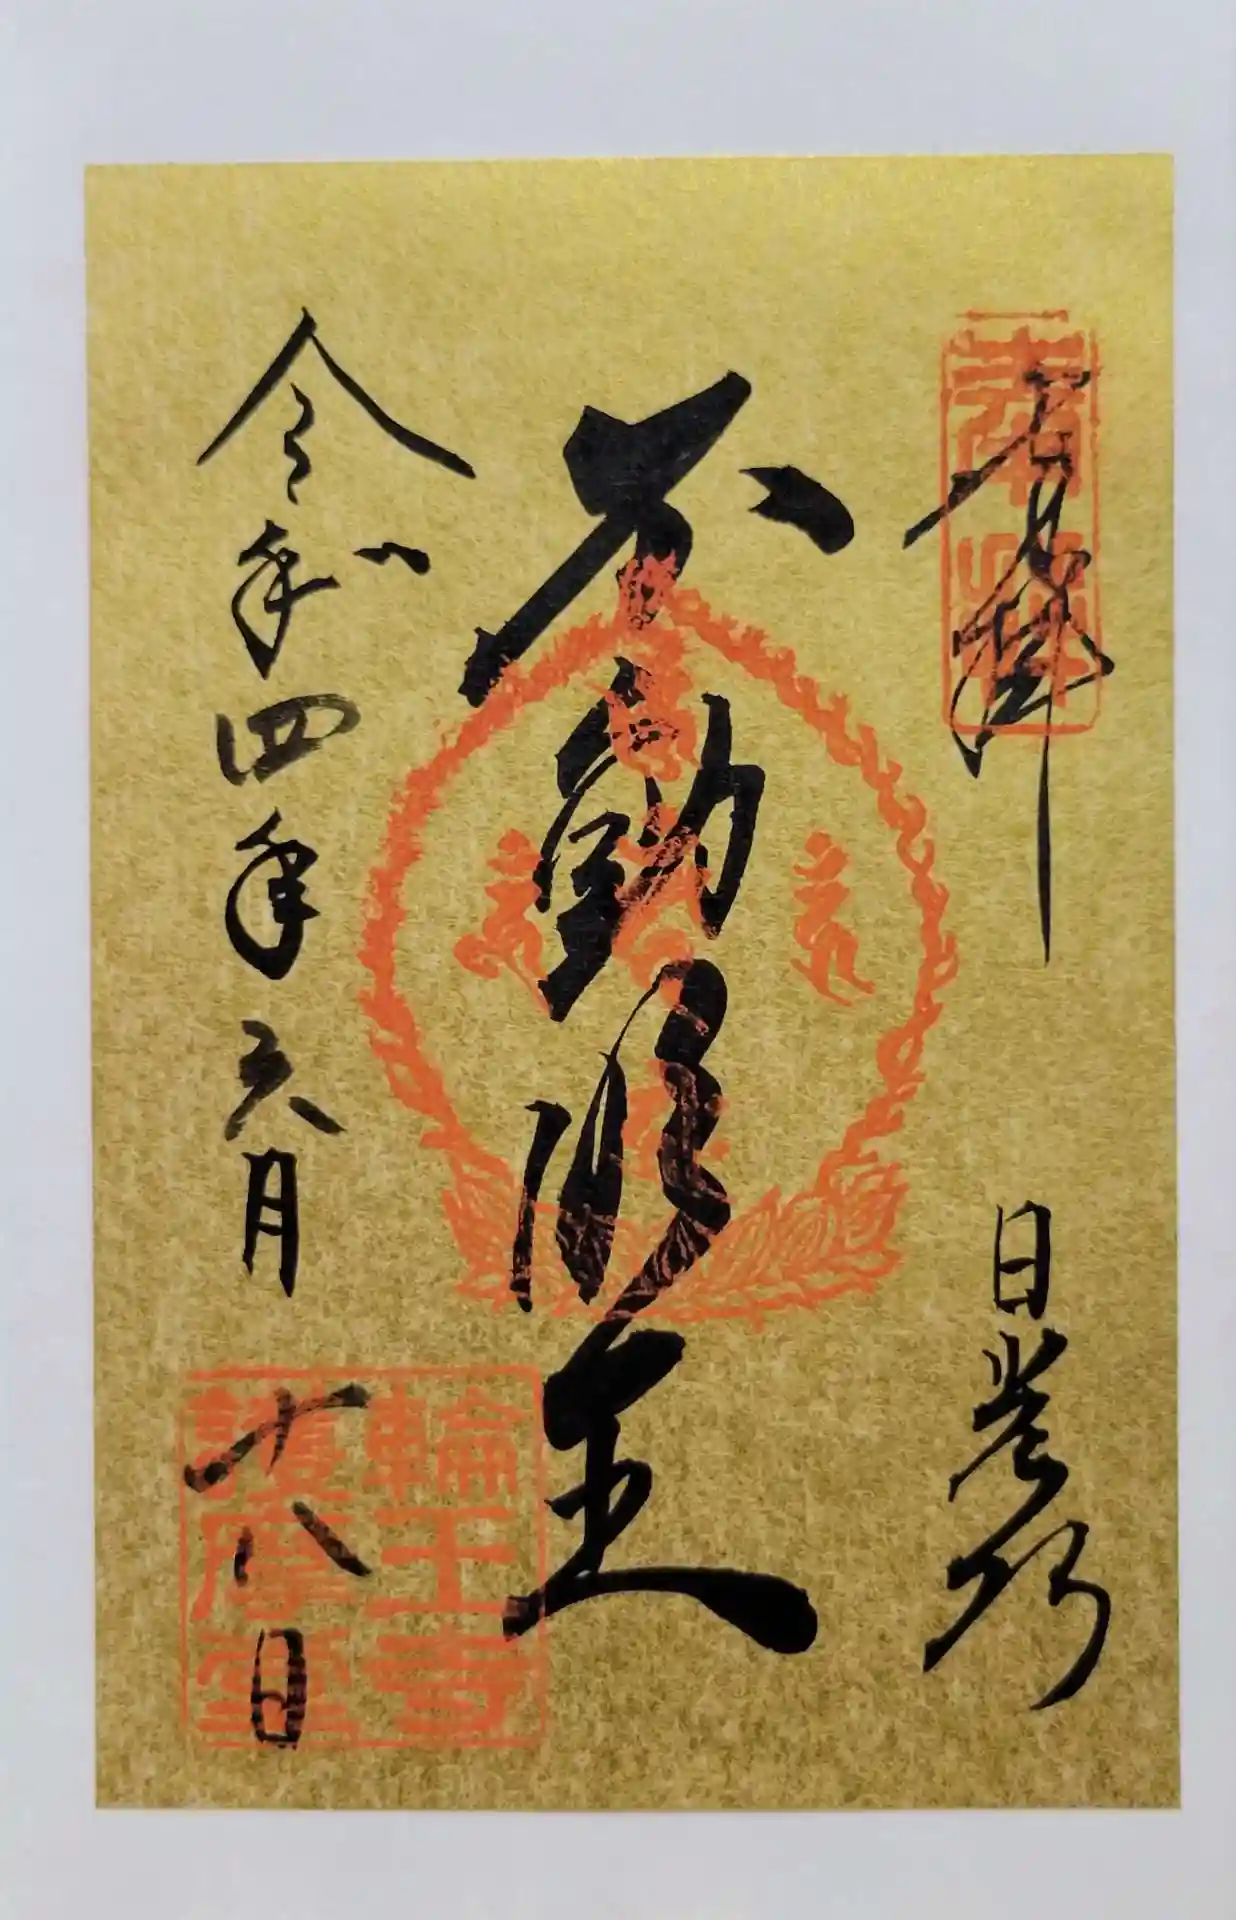 奉拝
日光山
不動明王
令和四年六月十八日
輪王寺
護摩堂